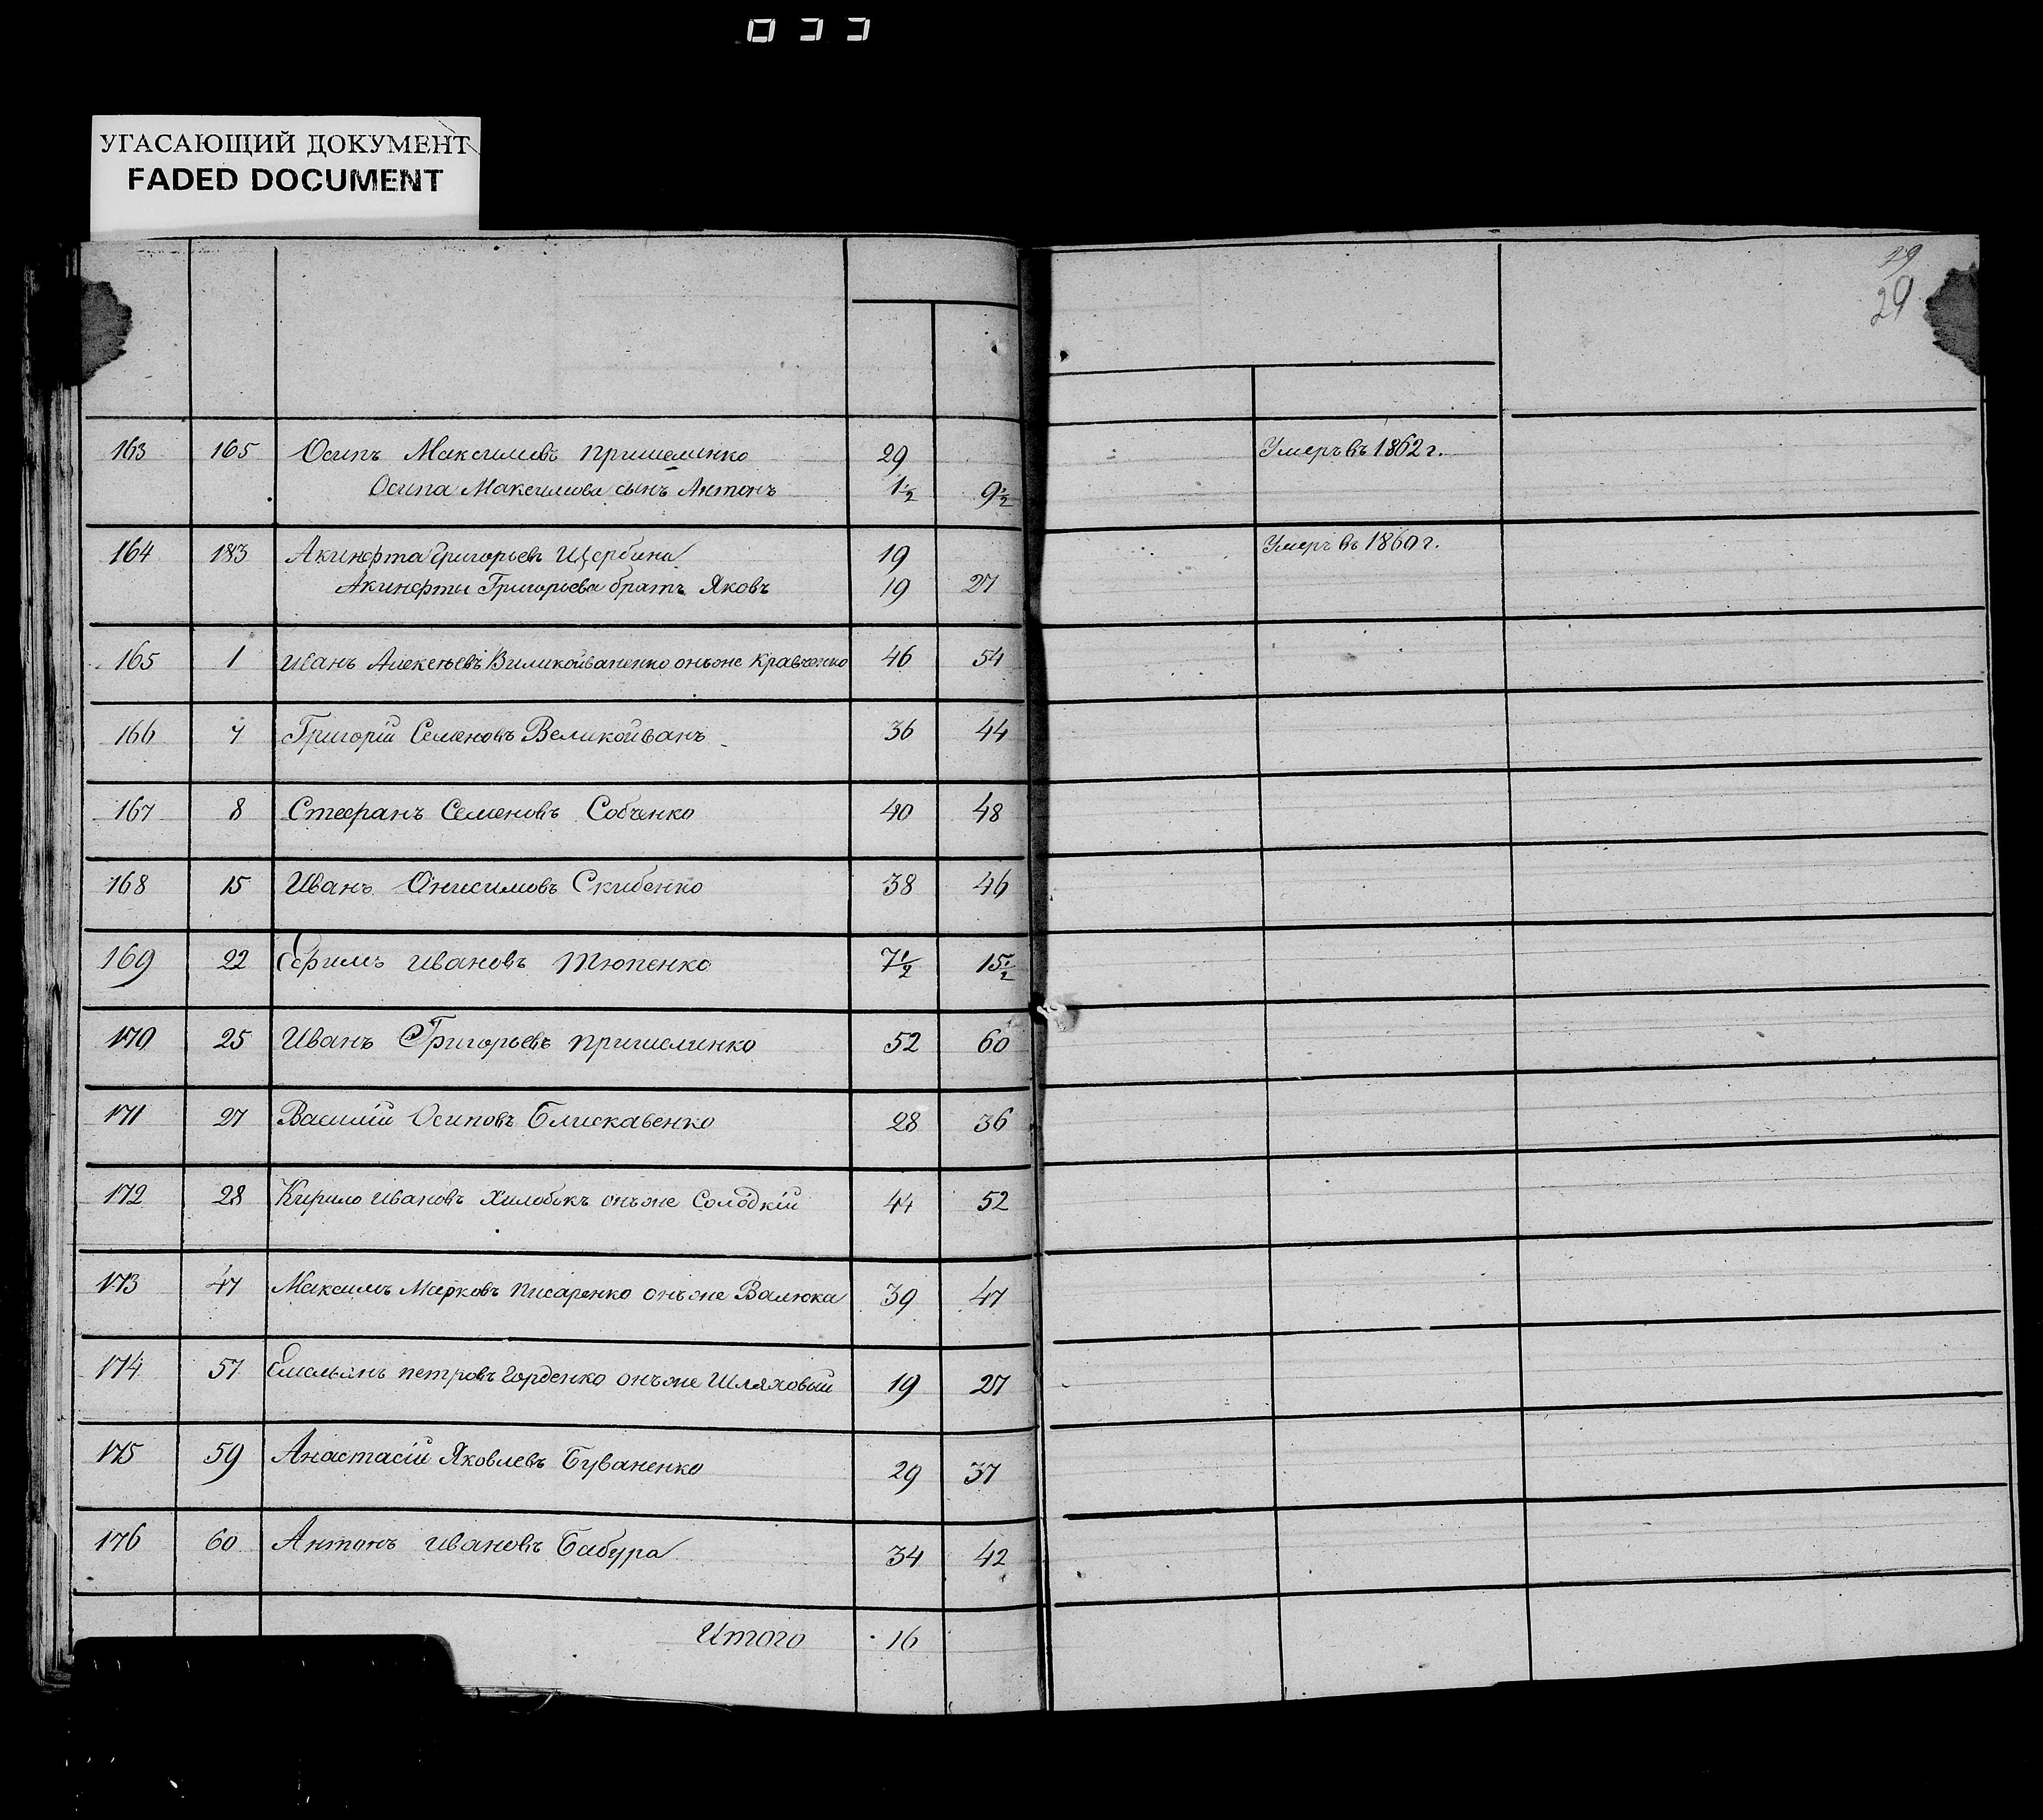 033
УГАСАЮЩИЙ ДОКУМЕНТ
FADED DOCUMENT
29
29
163 165 Осипъ Максимовъ Пришеминко 29 Умеръ въ 1862 г.
Осипа Максимова сынъ Антонъ 1½ 9½
164 183 Акинфта Григорьевъ Щербина 19 Умеръ въ 1860 г.
Акинфты Григорьева братъ Яковъ 19 27
165 1 Иванъ Алексѣевъ Виликоиваненко онъ же Кравченко 46 54
166 7 Григорій Семеновъ Великоиванъ 36 44
167 8 Стефанъ Семеновъ Собченко 40 48
168 15 Иванъ Онисимовъ Скибенко 38 46
169 22 Ефимъ Ивановъ Тюпенко 7½ 15½
170 25 Иванъ Григорьевъ Пришелинко 52 60
171 27 Василій Осиповъ Блискавенко 28 36
172 28 Кирило Ивановъ онъ же Солодкій 44 52
173 47 Максимъ Марковъ Писаренко онъ же Валюка 39 47
174 57 Емельянъ Петровъ Горденко онъ же Шляховый 19 27
175 59 Анастасій Яковлевъ Буваненко 29 37
176 60 Антонъ Ивановъ Бабура 34 42
Итого 16